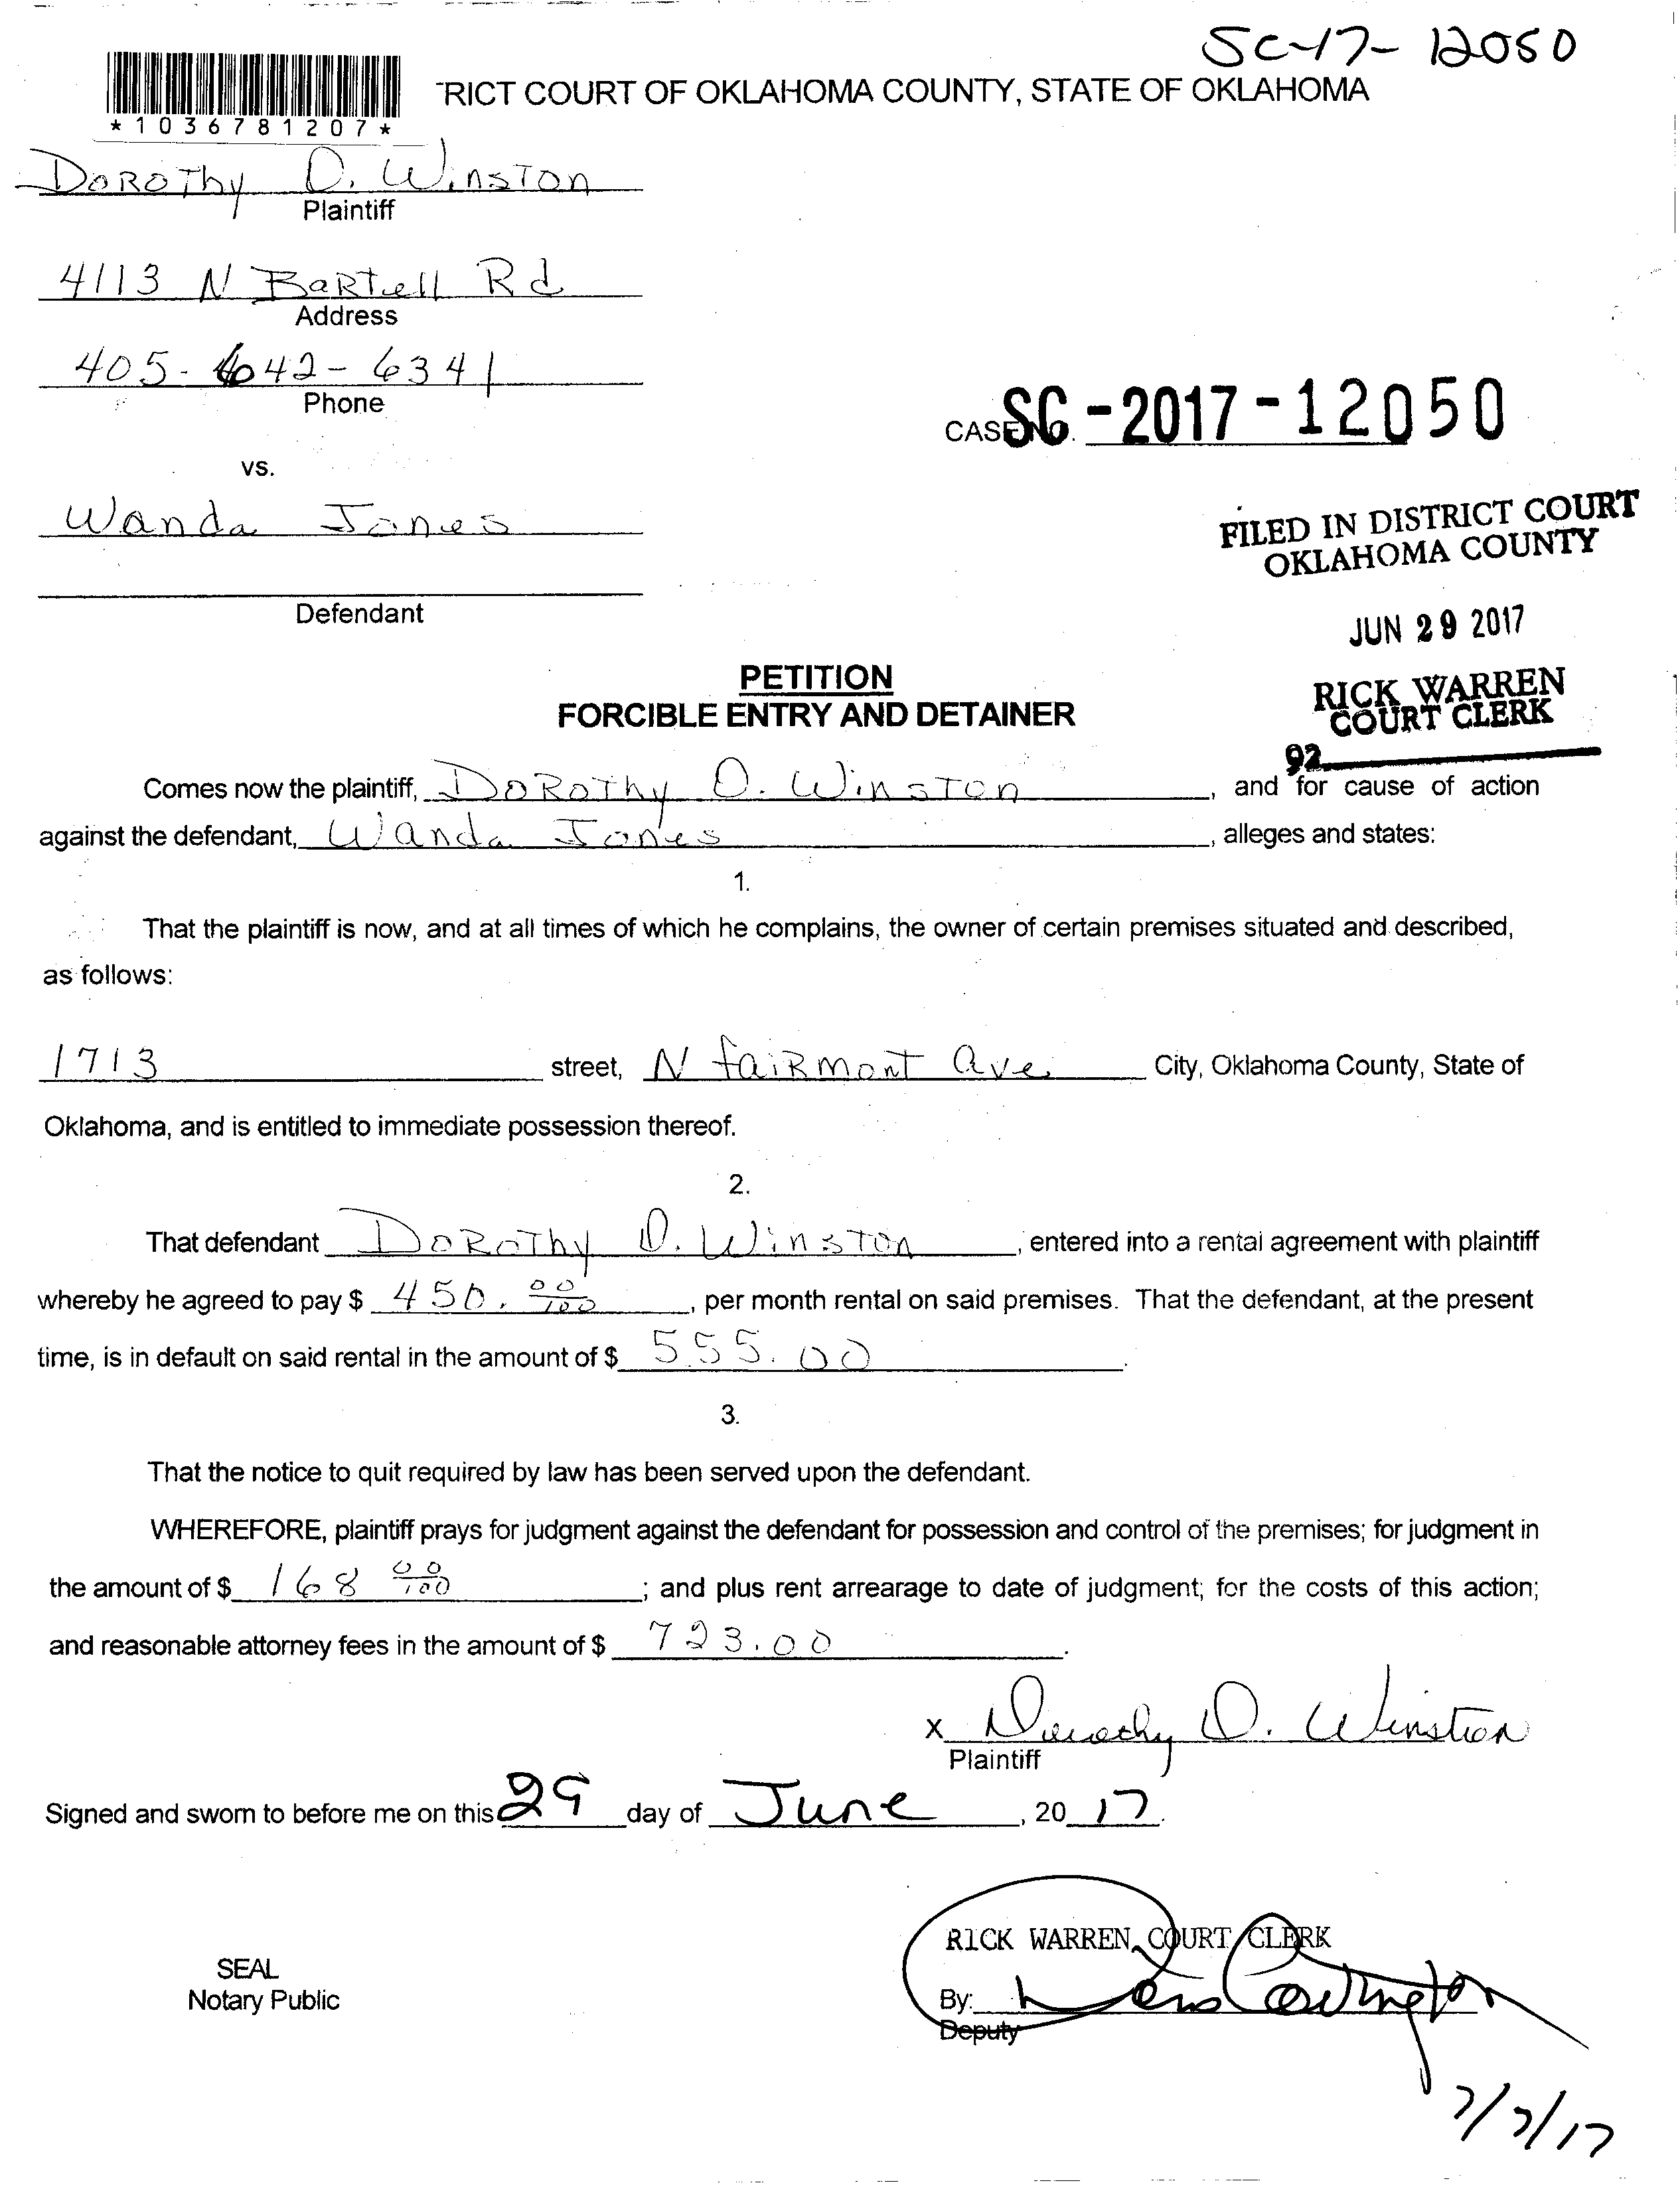 SC-17-12050
RICT COURT OF OKLAHOMA COUNTY, STATE OF OKLAHOMA
*1036781207*
Dorothy D. Winston
Plaintiff
4113 N Bartell Rd
Address
405-642-6341
Phone
CASE NO. SC-2017-12050
vs.
Wanda Jones
Defendant
FILED IN DISTRICT COURT
OKLAHOMA COUNTY
JUN 29 2017
RICK WARREN
COURT CLERK
92
PETITION
FORCIBLE ENTRY AND DETAINER
Comes now the plaintiff, Dorothy D. Winston, and for cause of action
against the defendant, Wanda Jones, alleges and states:
1.
That the plaintiff is now, and at all times of which he complains, the owner of certain premises situated and described,
as follows:
1713 street, N fairmont Ave. City, Oklahoma County, State of
Oklahoma, and is entitled to immediate possession thereof.
2.
That defendant Dorothy D. Winston, entered into a rental agreement with plaintiff
whereby he agreed to pay $ 450. 00/100, per month rental on said premises. That the defendant, at the present
time, is in default on said rental in the amount of $ 555.00.
3.
That the notice to quit required by law has been served upon the defendant.
WHEREFORE, plaintiff prays for judgment against the defendant for possession and control of the premises; for judgment in
the amount of $ 168 00/100; and plus rent arrearage to date of judgment; for the costs of this action;
and reasonable attorney fees in the amount of $ 723.00.
x Dorothy D. Winston
Plaintiff
Signed and sworn to before me on this 29 day of June, 2017.
SEAL
Notary Public
RICK WARREN, COURT CLERK
By:
Deputy